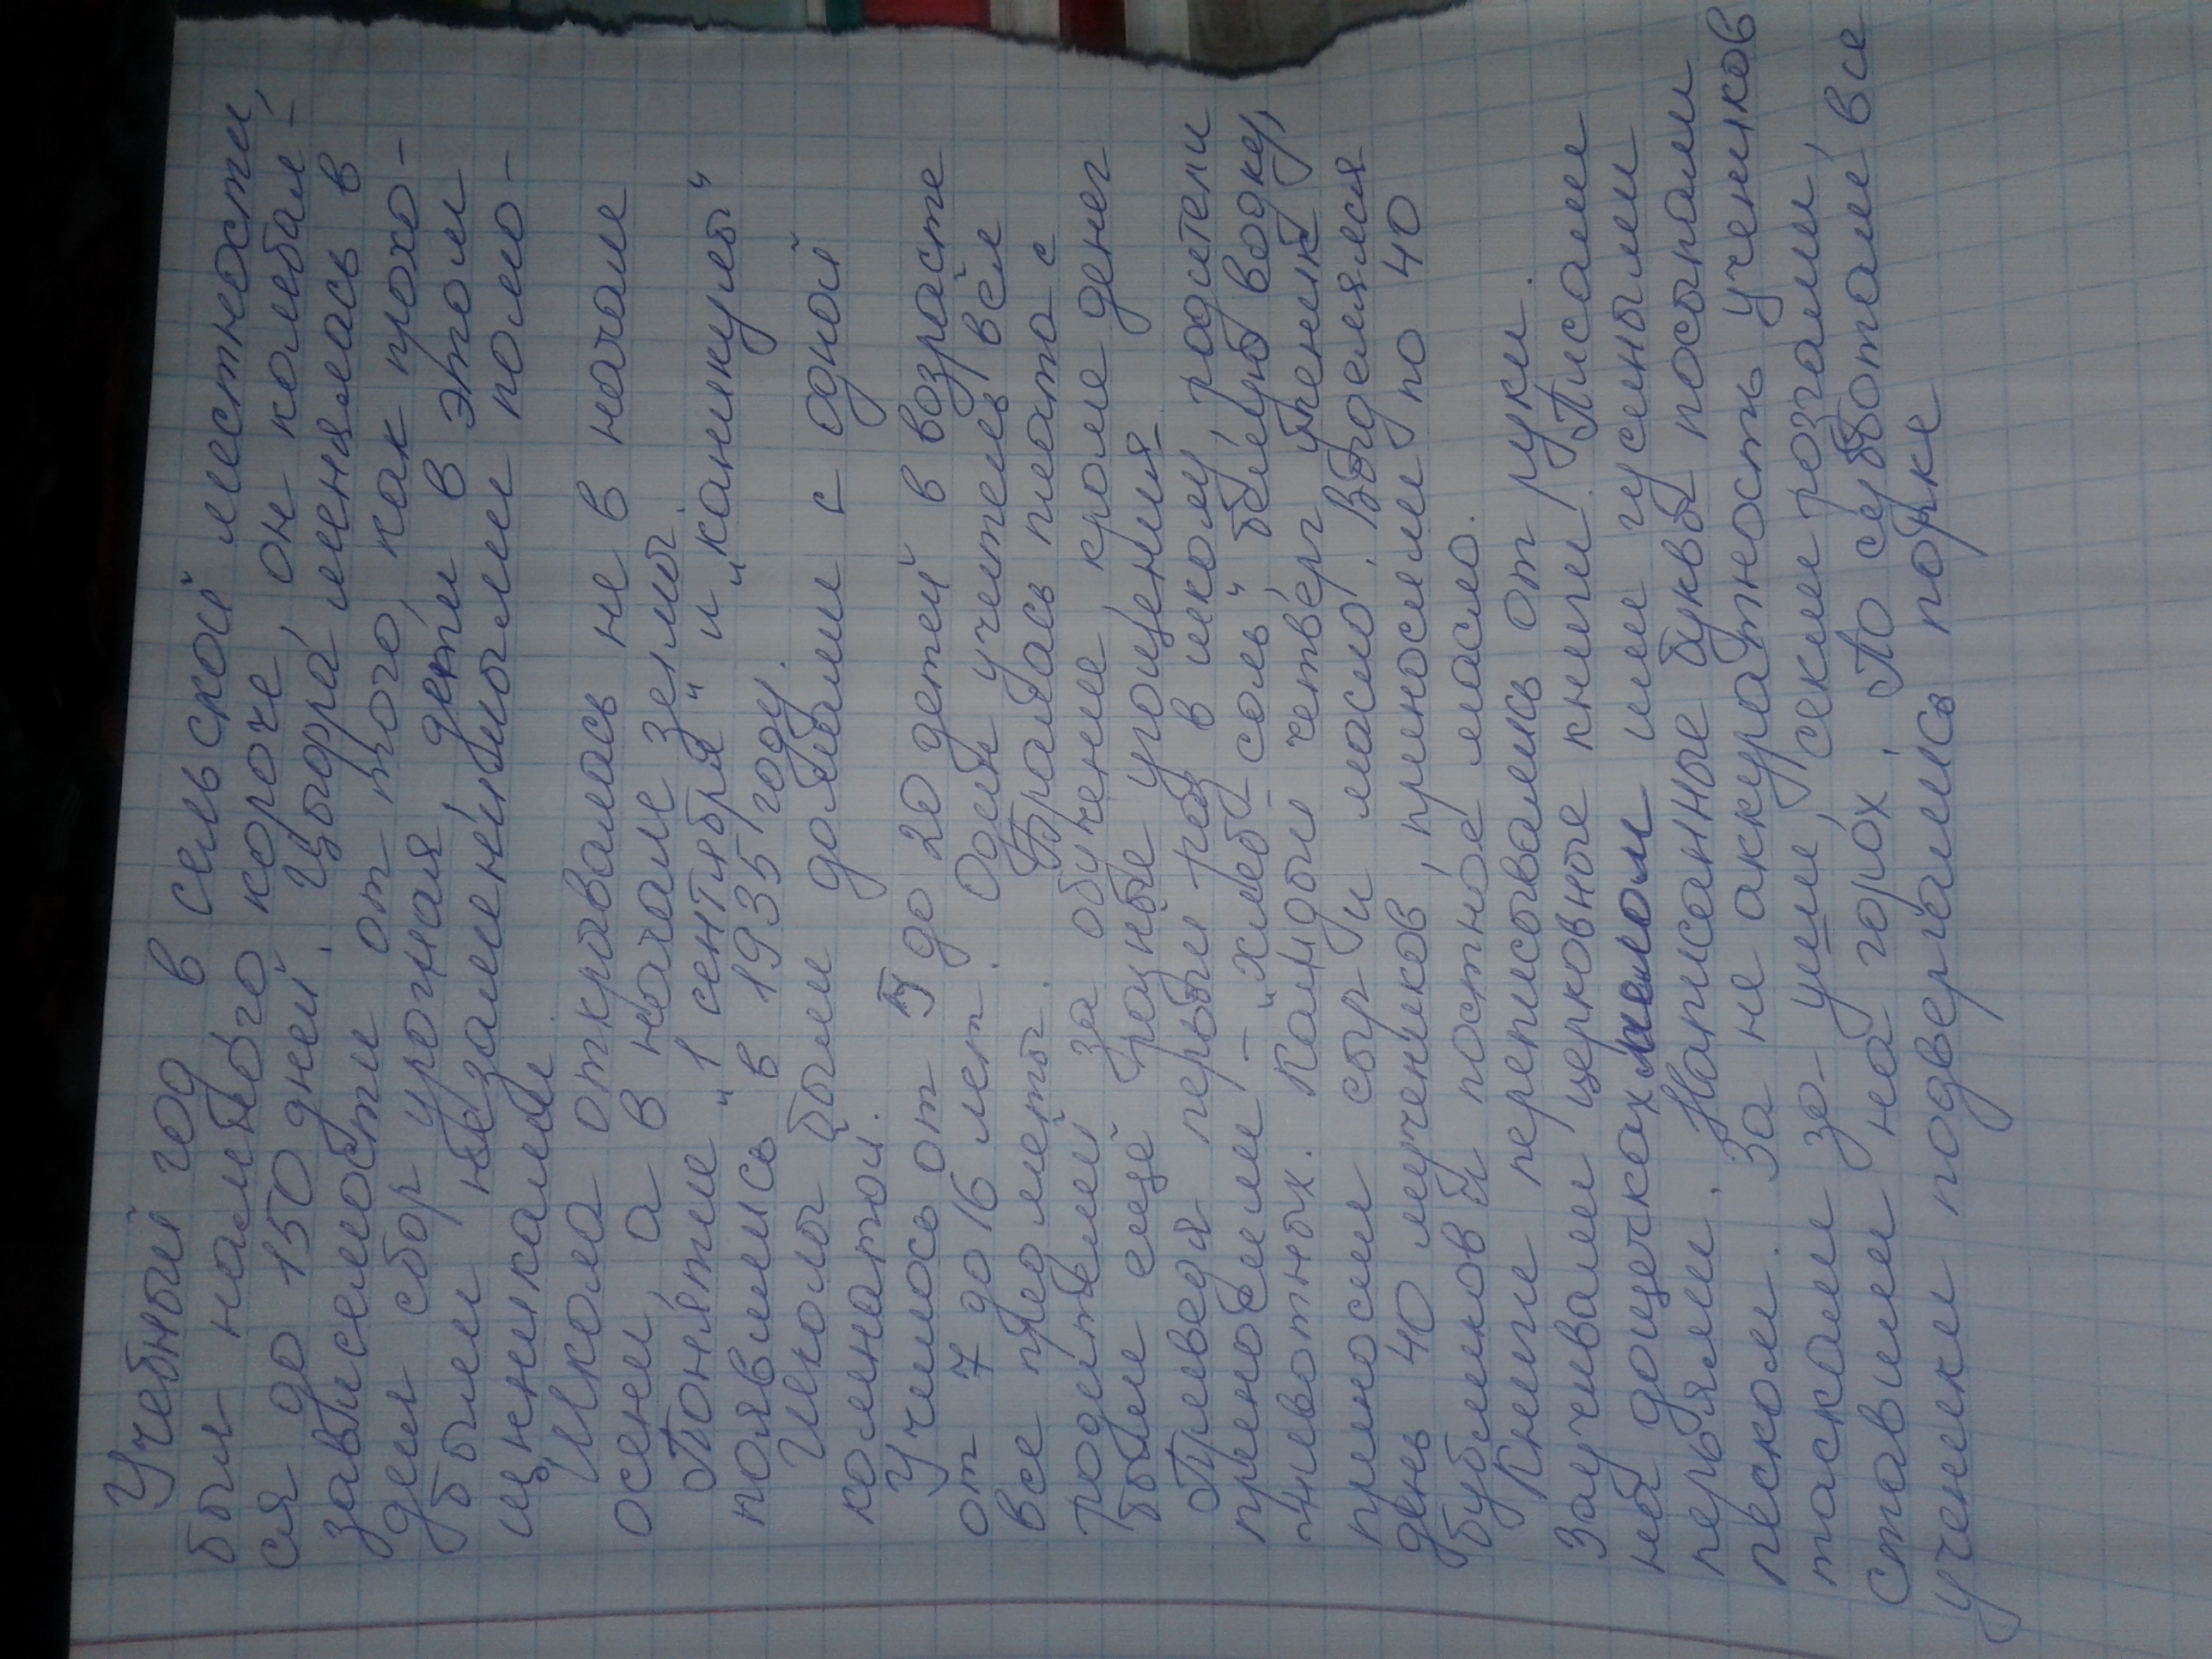 Учебный год в сельской местности,
был намного короче, он колебал-
ся до 150 дней. Цыфра, менялась в
зависемости от того, как прохо-
дил сбор урожая, дети в этом
были незаменимыми помо-
щниками.
Школа открывалась не в начале
осени, а в начале зимы.
Понятие "1 сентября" и "каникулы"
появились в 1935 году.
Школы были домами с одной
комнатой.
Училось от 5 до 20 детей в возрасте
от 7 до 16 лет. Один учитель вёл
все предметы. Бралась плата с
родителей за обучение, кроме денег
были ещё разные угощения.
Приведя первый раз в школу, родители
приносили - "хлеб-соль" белую водку,
животных. Каждый четверг ученики
приносили сыр и масло. Выделялся
день 40 мучеников, приносили по 40
бубликов и постное масло.
Книги переписывались от руки.
Заучивали церковные книги. Писали
на дощечках мелом или гусиными
перьями. Написанные буквы посыпали
песком. За не аккуратность учеников
таскали за-уши, секли розгами,
ставили на горох. По субботам, все
ученики подвергались порке